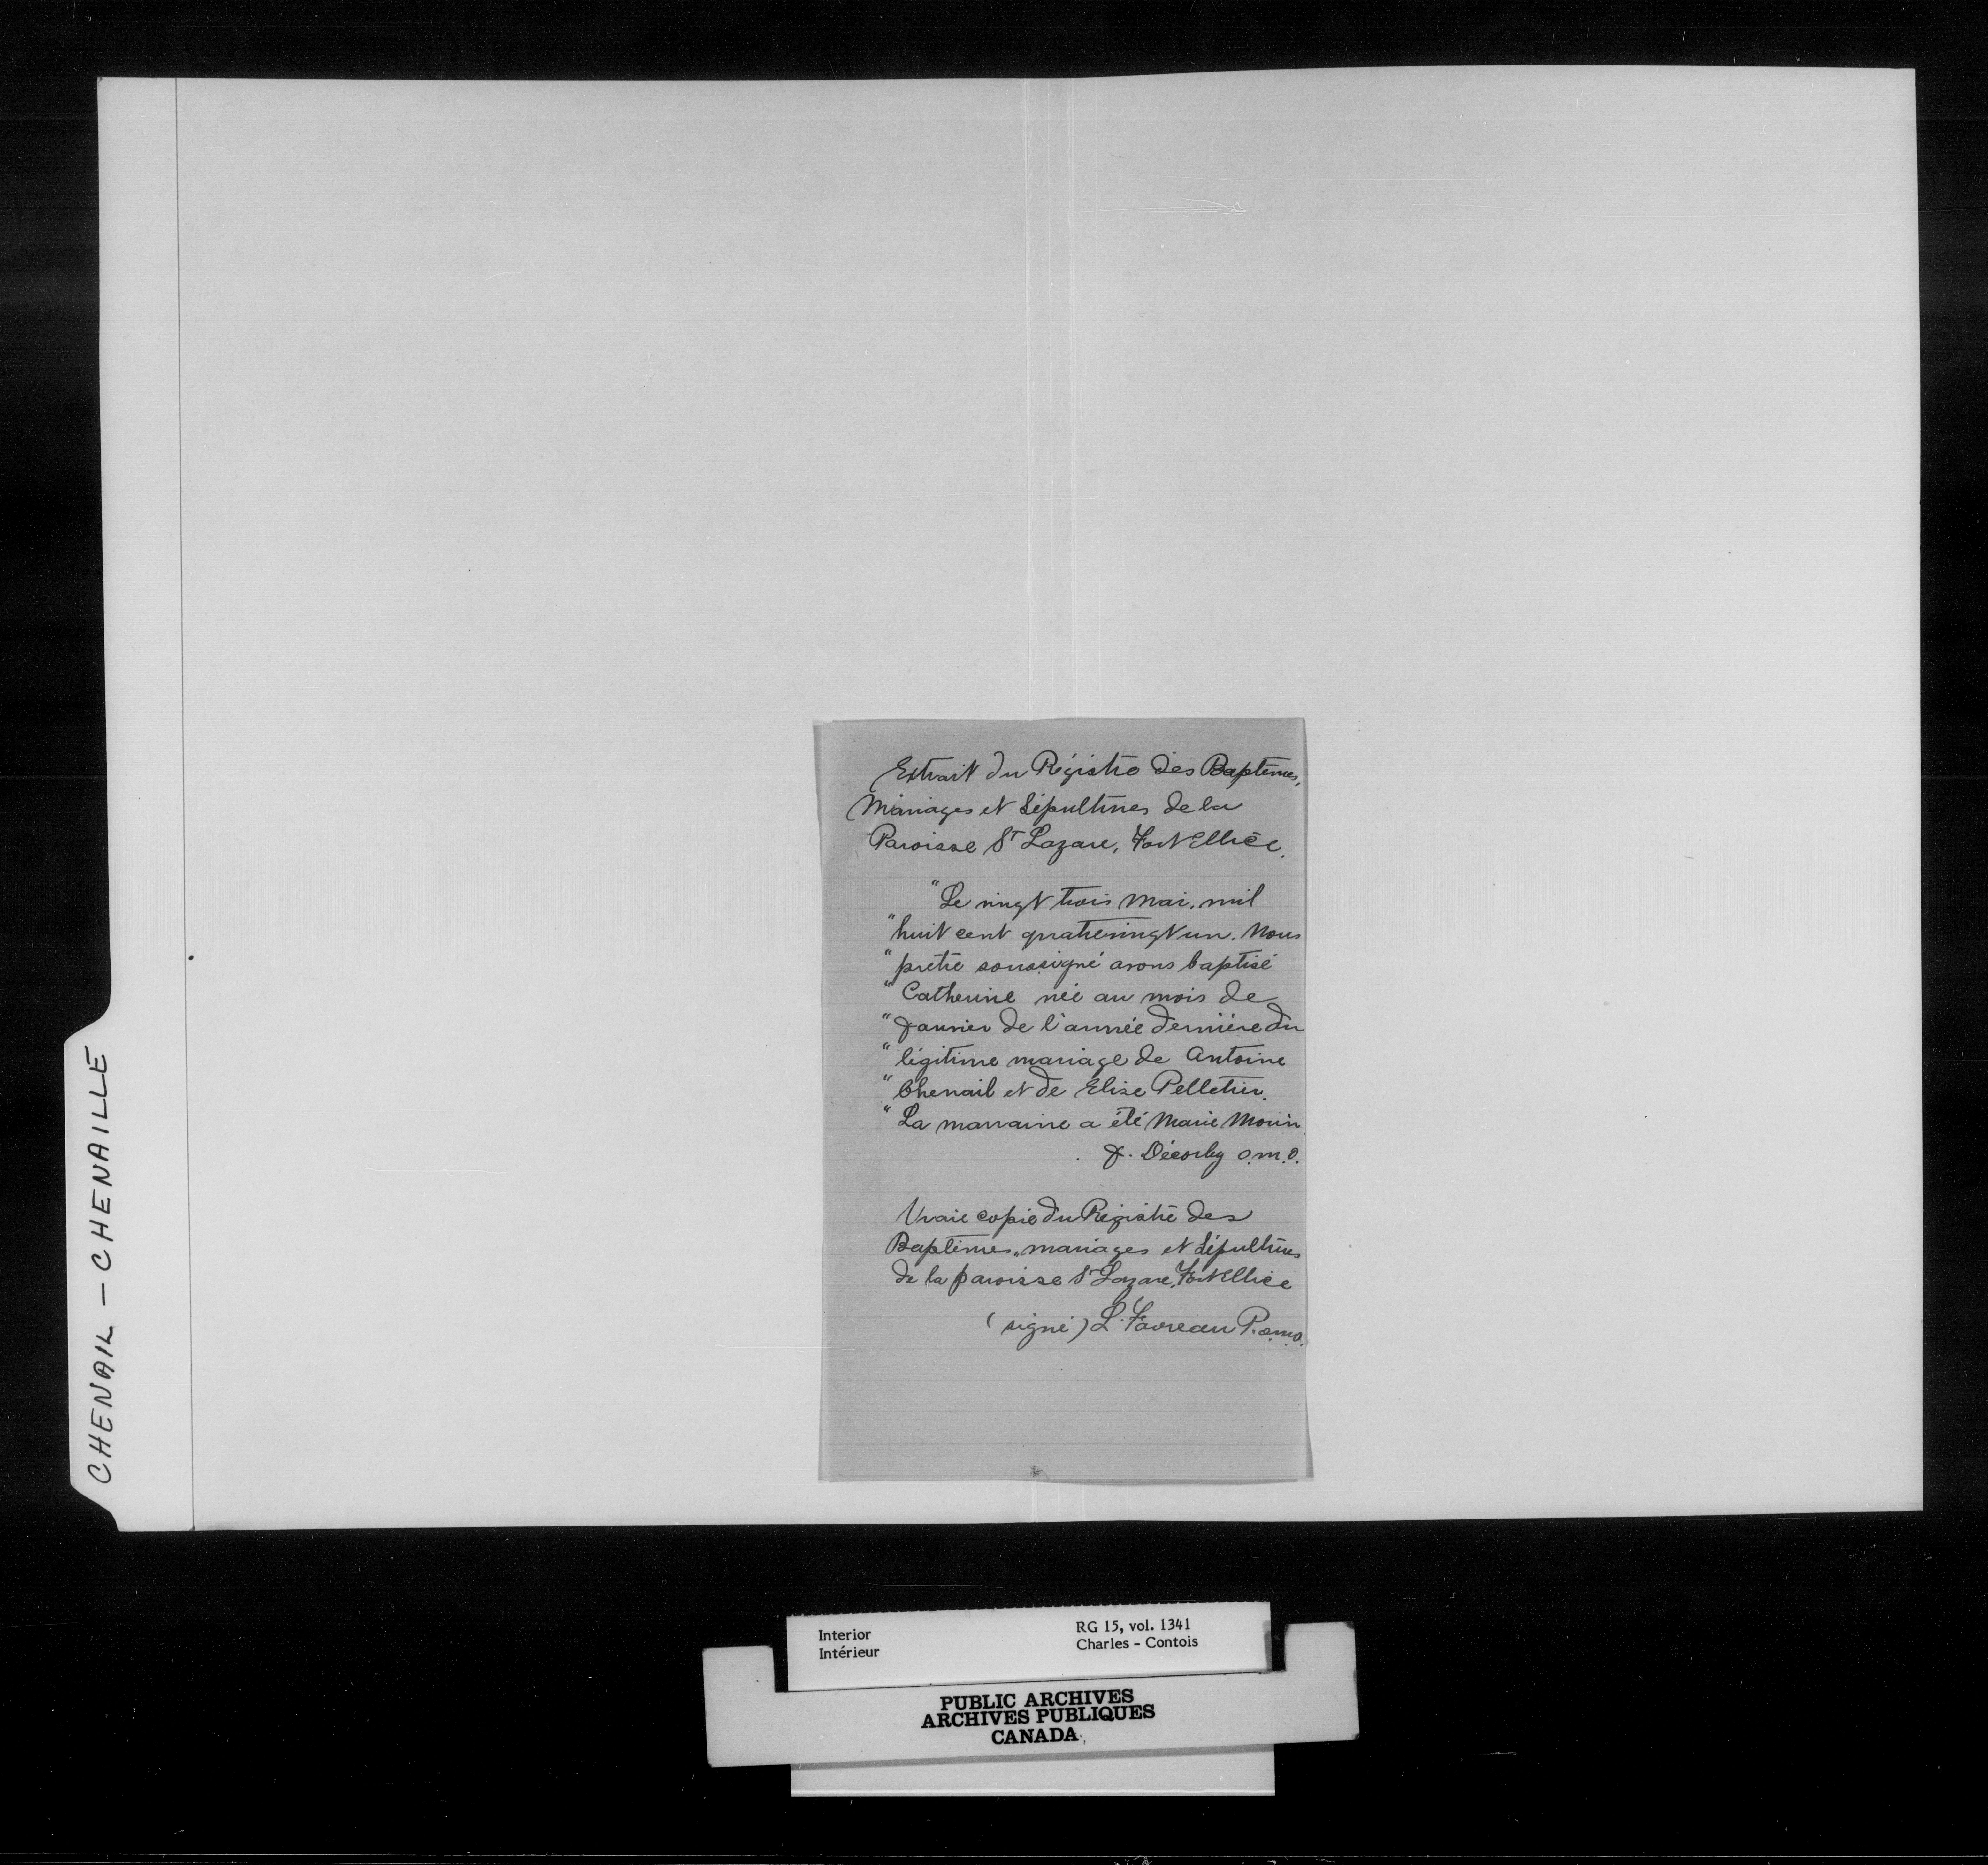 CHENAIL - CHENAILLE
Extrait du Régistre des Baptêmes,
Mariages et Sépultures de la
Paroisse St Lazare, Fort Ellice.
"Le vingt trois Mai. mil
"huit cent quatrevingt un. Nous
"prêtre soussigné avons baptisé
"Catherine née au mois de
"Janvier de l'année dernière du
"légitime mariage de Antoine
"Chenail et de Elise Pelletier.
"La marraine a été Marie Morin
J. Décorby o.m.i.
Vraie copie du Régistre des
Baptêmes, mariages et Sépultures
de la paroisse St Lazare, Fort Ellice
(signé) L. Favreau P. o.m.i.
Interior
Intérieur
RG 15, vol. 1341
Charles - Contois
PUBLIC ARCHIVES
ARCHIVES PUBLIQUES
CANADA